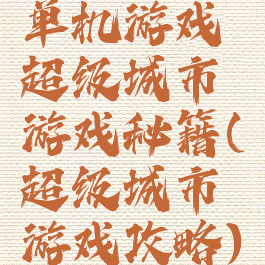 单机游戏
超级城市
游戏秘籍(
超级城市
游戏攻略)